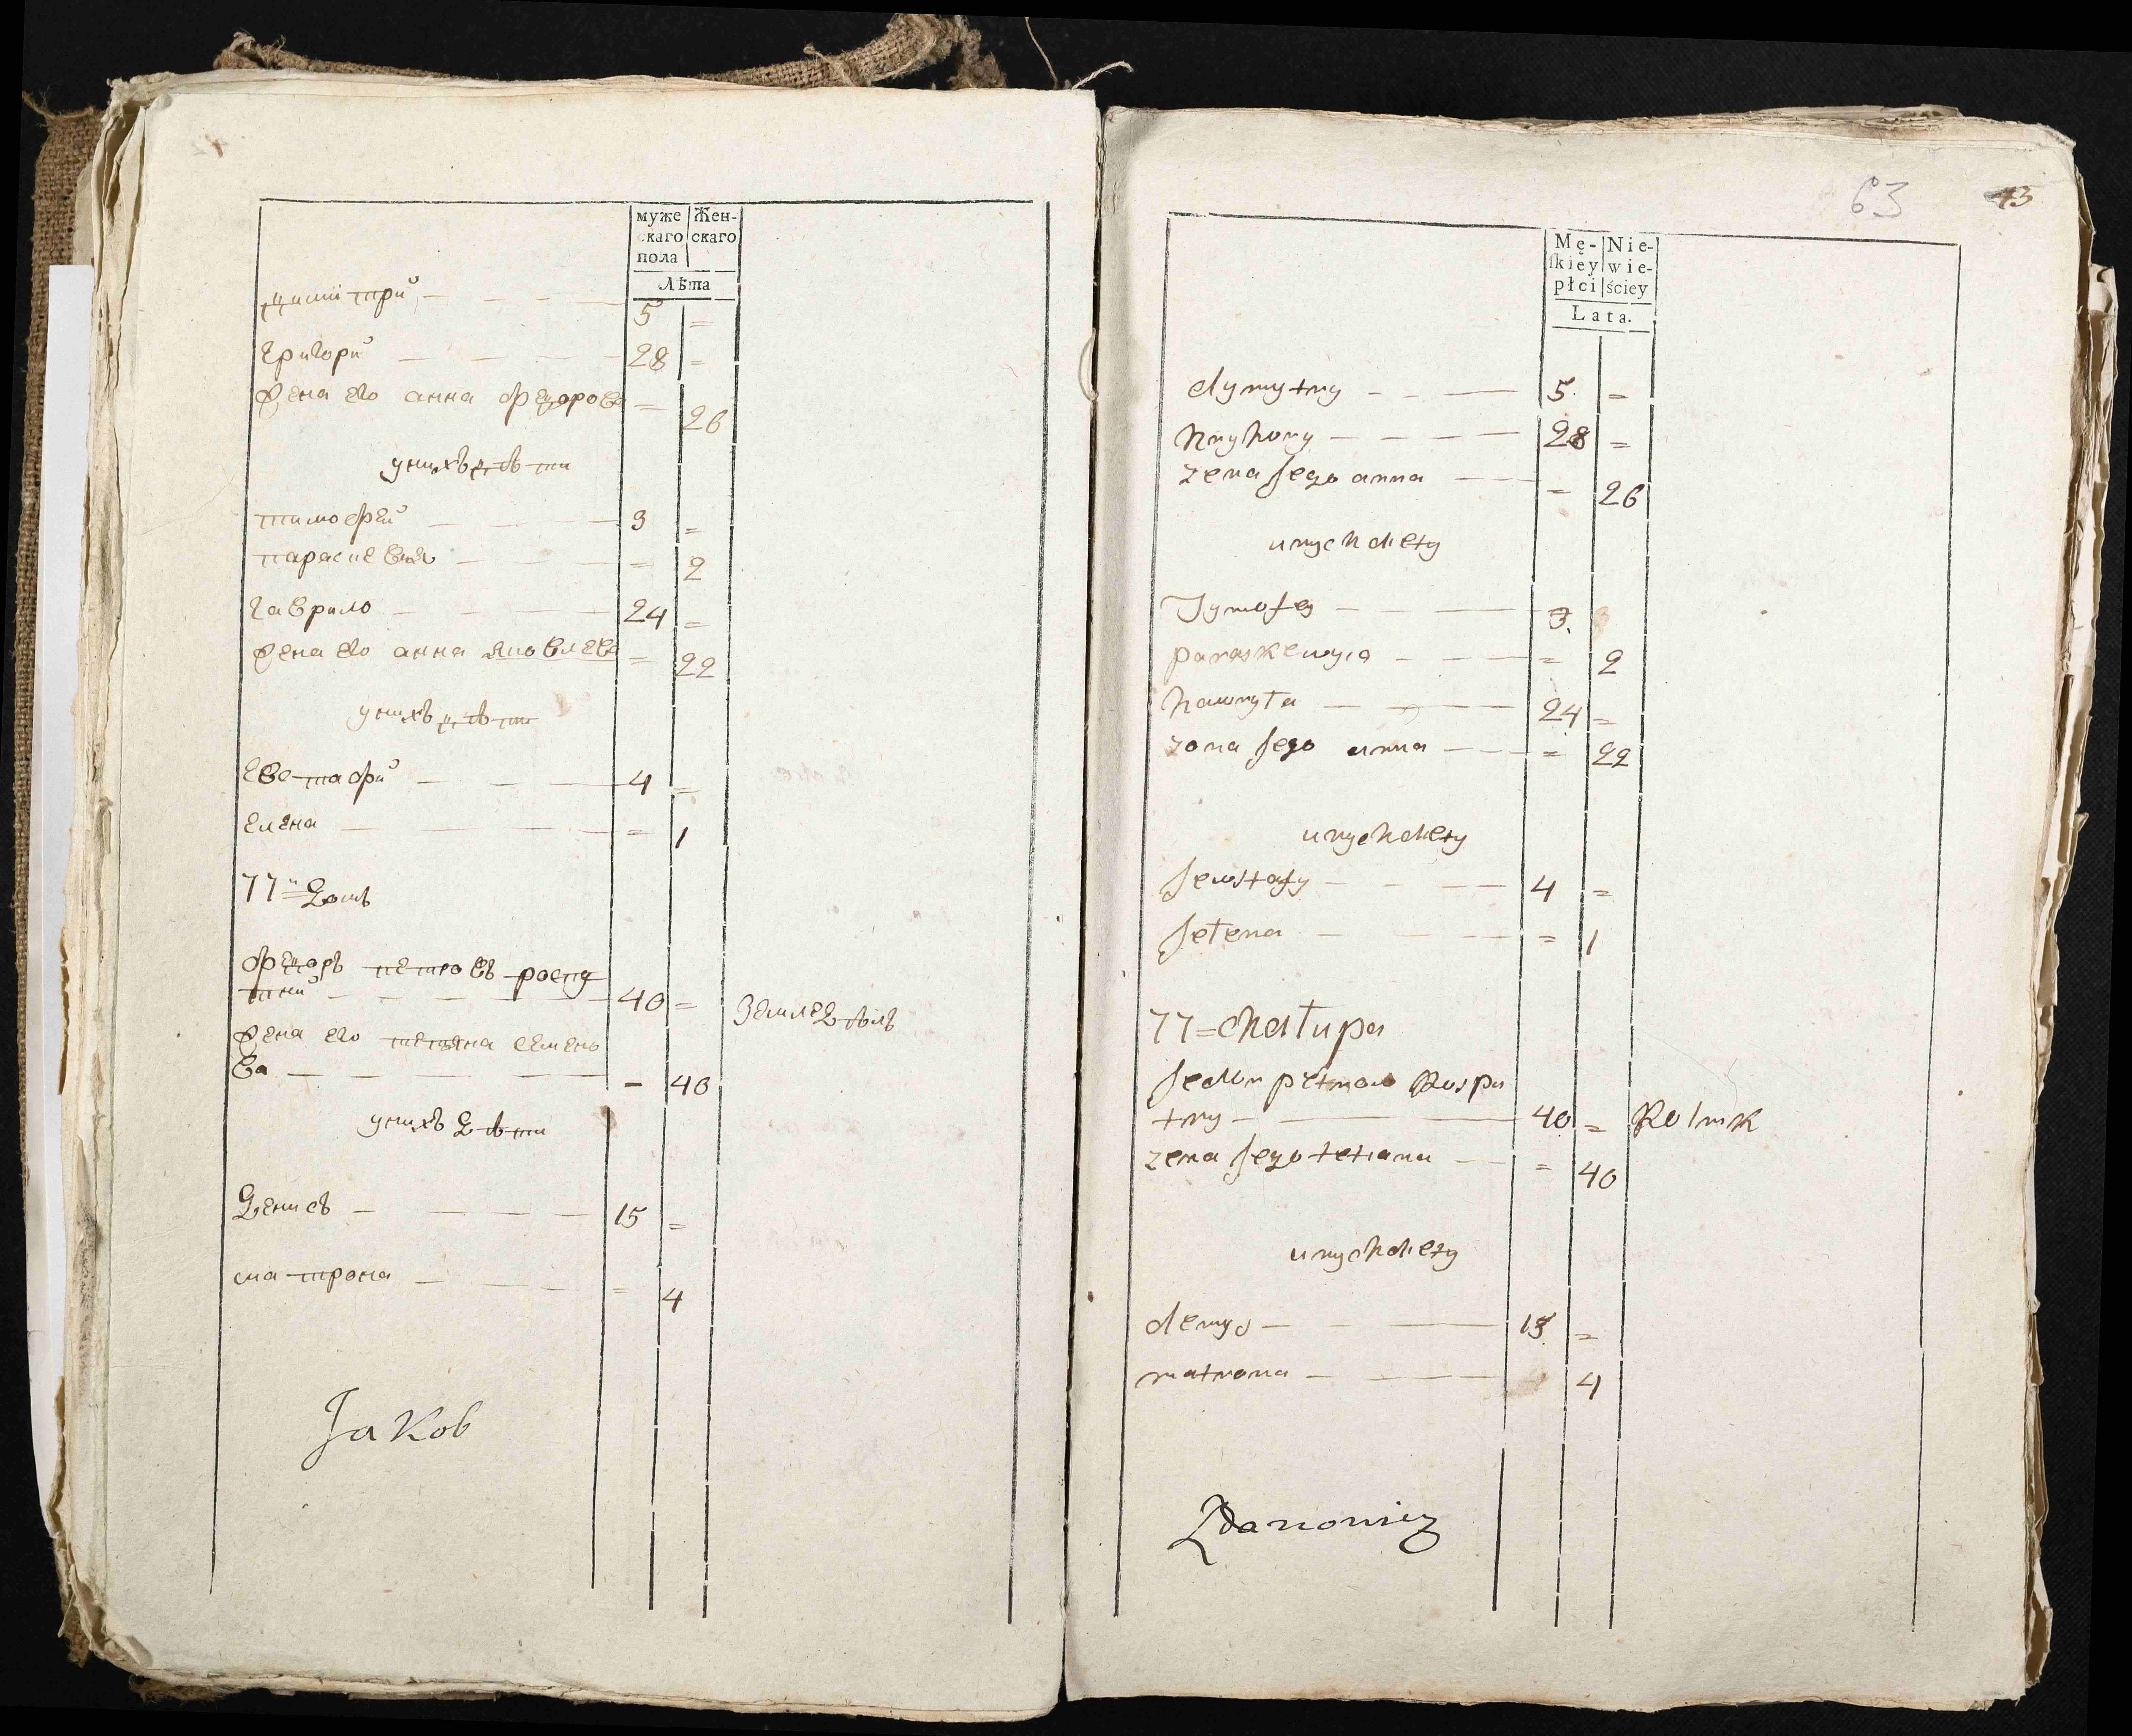 муже
скаго
пола
Жен-
скаго
Лѣта
димитри 5 =
григори 28 =
жена его анна федорова = 26
у нихъ дѣти
тимофей 3 =
параскевия = 2
гаврило 24 =
жена его анна яковлева = 22
у нихъ дѣти
евстафи 4 =
елена = 1
77й домъ
федоръ петровъ роспу
тни 40 = земледѣлъ
жена его тетяна семено
ва = 40
у нихъ дѣти
денисъ 15 =
матрона = 4
Jakob
63 43
Mę-
skiey
płci
Nie-
wie-
ściey
Lata.
dymytry 5 =
hryhory 28 =
zena Jego anna = 26
unych diety
Tymofey 3
paraskewyia = 2
hawryła 24 =
zona Jego anna = 22
unych diety
Jewstafy 4 =
Jełena = 1
77 = chałupa
fedor petrow Rospu
tny 40 = Rolnik
zena Jego tetiana = 40
unych diety
denys 15 =
matrona 4
Zdanowicz